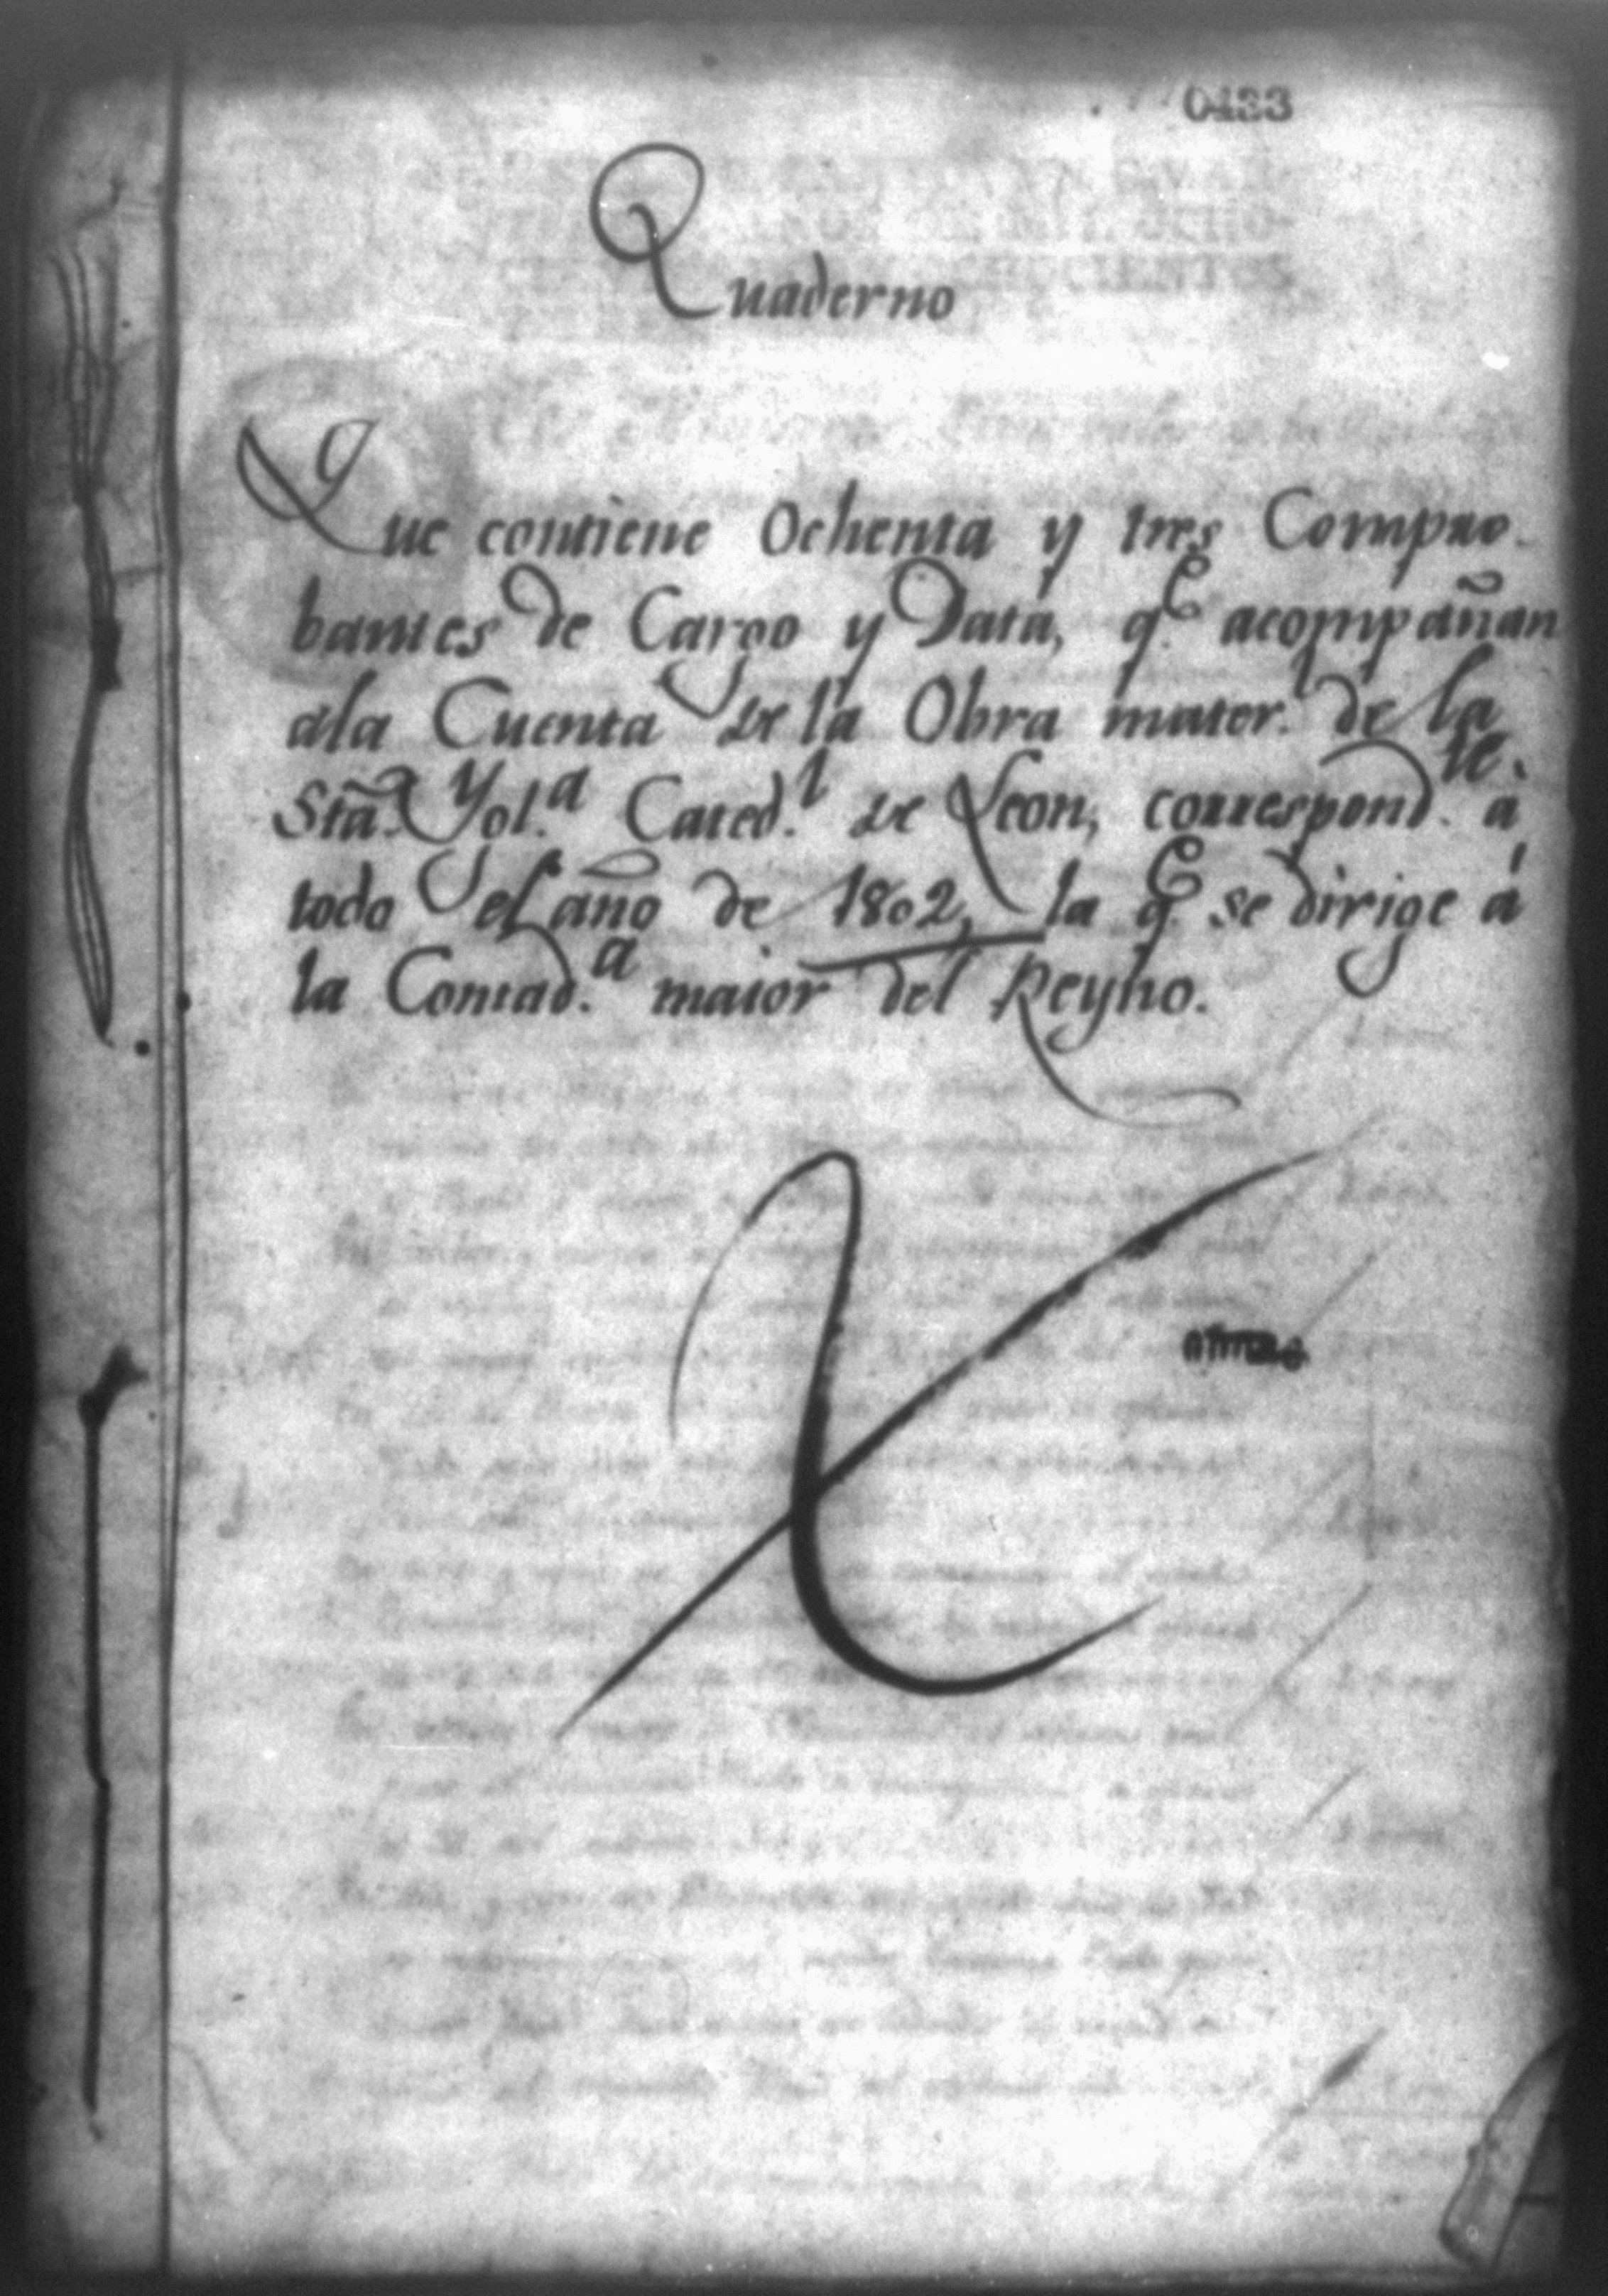 0433
Quaderno
Que contiene Ochenta y tres Compro-
bantes de Cargo y Data, q.e acompañan
ala Cuenta de la Obra mater.l de la
Sta. Ygl.a Cated.l de Leon, correspond.te a
todo el año de 1802, la q.e se dirige á
la Contad.a maior del Reyno.